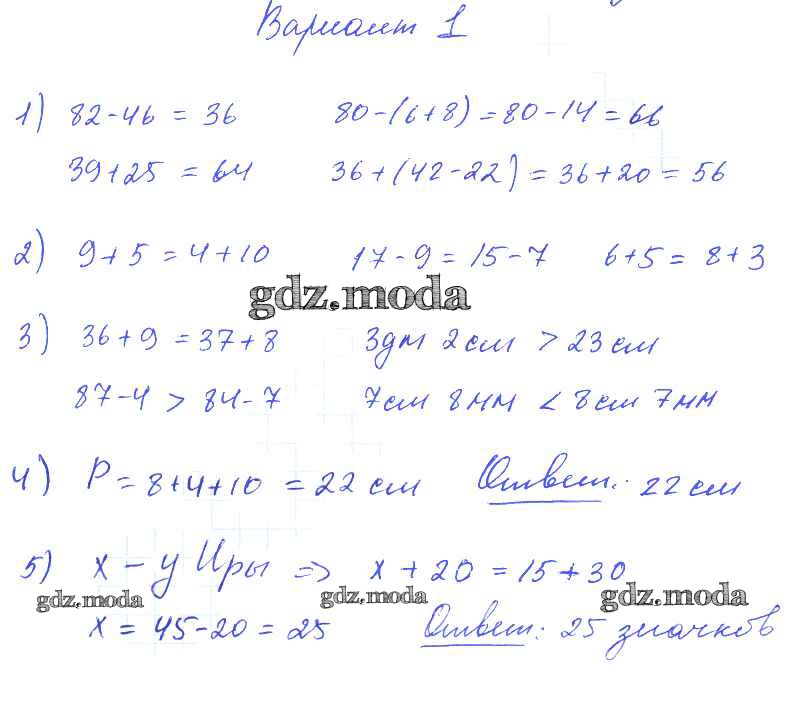 Вариант 1
1) 82-46 = 36 80-(6+8) = 80-14 = 66
39+25 = 64 36+(42-22) = 36+20 = 56
2) 9+5 = 4+10 17-9 = 15-7 6+5 = 8+3
gdz.moda
3) 36+9 = 37+8 3дм 2см > 23см
87-4 > 84-7 7см 8мм < 8см 7мм
4) P = 8+4+10 = 22 см Ответ: 22 см
5) x - у Иры => x + 20 = 15 + 30
gdz.moda gdz.moda gdz.moda
x = 45-20 = 25 Ответ: 25 значков